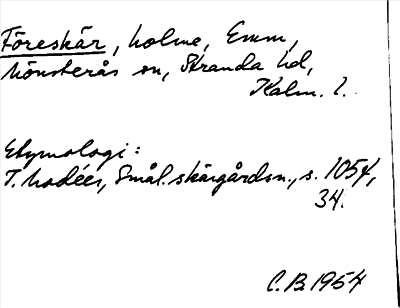 Föreskär, holme, Emm,
Mönsterås sn, Stranda hd,
Kalm. l.
Etymologi:
T. Modéer, Smål. skärgårdsn., s. 105 f,
34.
C.B. 1954